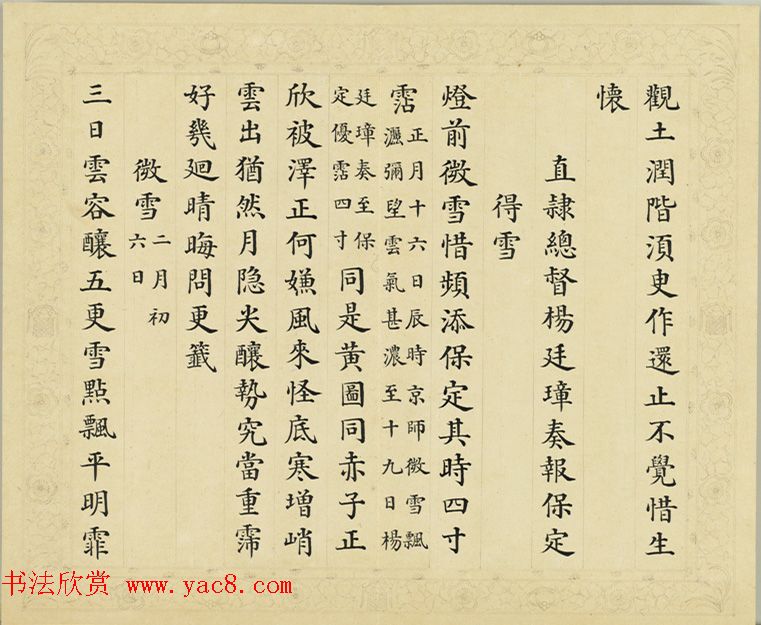 觀土潤階湏臾作還止不覺惜生
懐
直隷總督楊廷璋奏報保定
得雪
燈前微雪惜頻添保定其時四寸
霑正月十六日辰時京師微雪飄
灑彌望雲氣甚濃至十九日楊
廷璋奏至保
定優霑四寸同是黄圖同赤子正
欣被澤正何嫌風來怪底寒增峭
雲出猶然月隐尖釀勢究當重霈
好幾廻晴晦問更籤
微雪二月初
六日
三日雲容釀五更雪點飄平明霏
书法欣赏 www.yac8.com